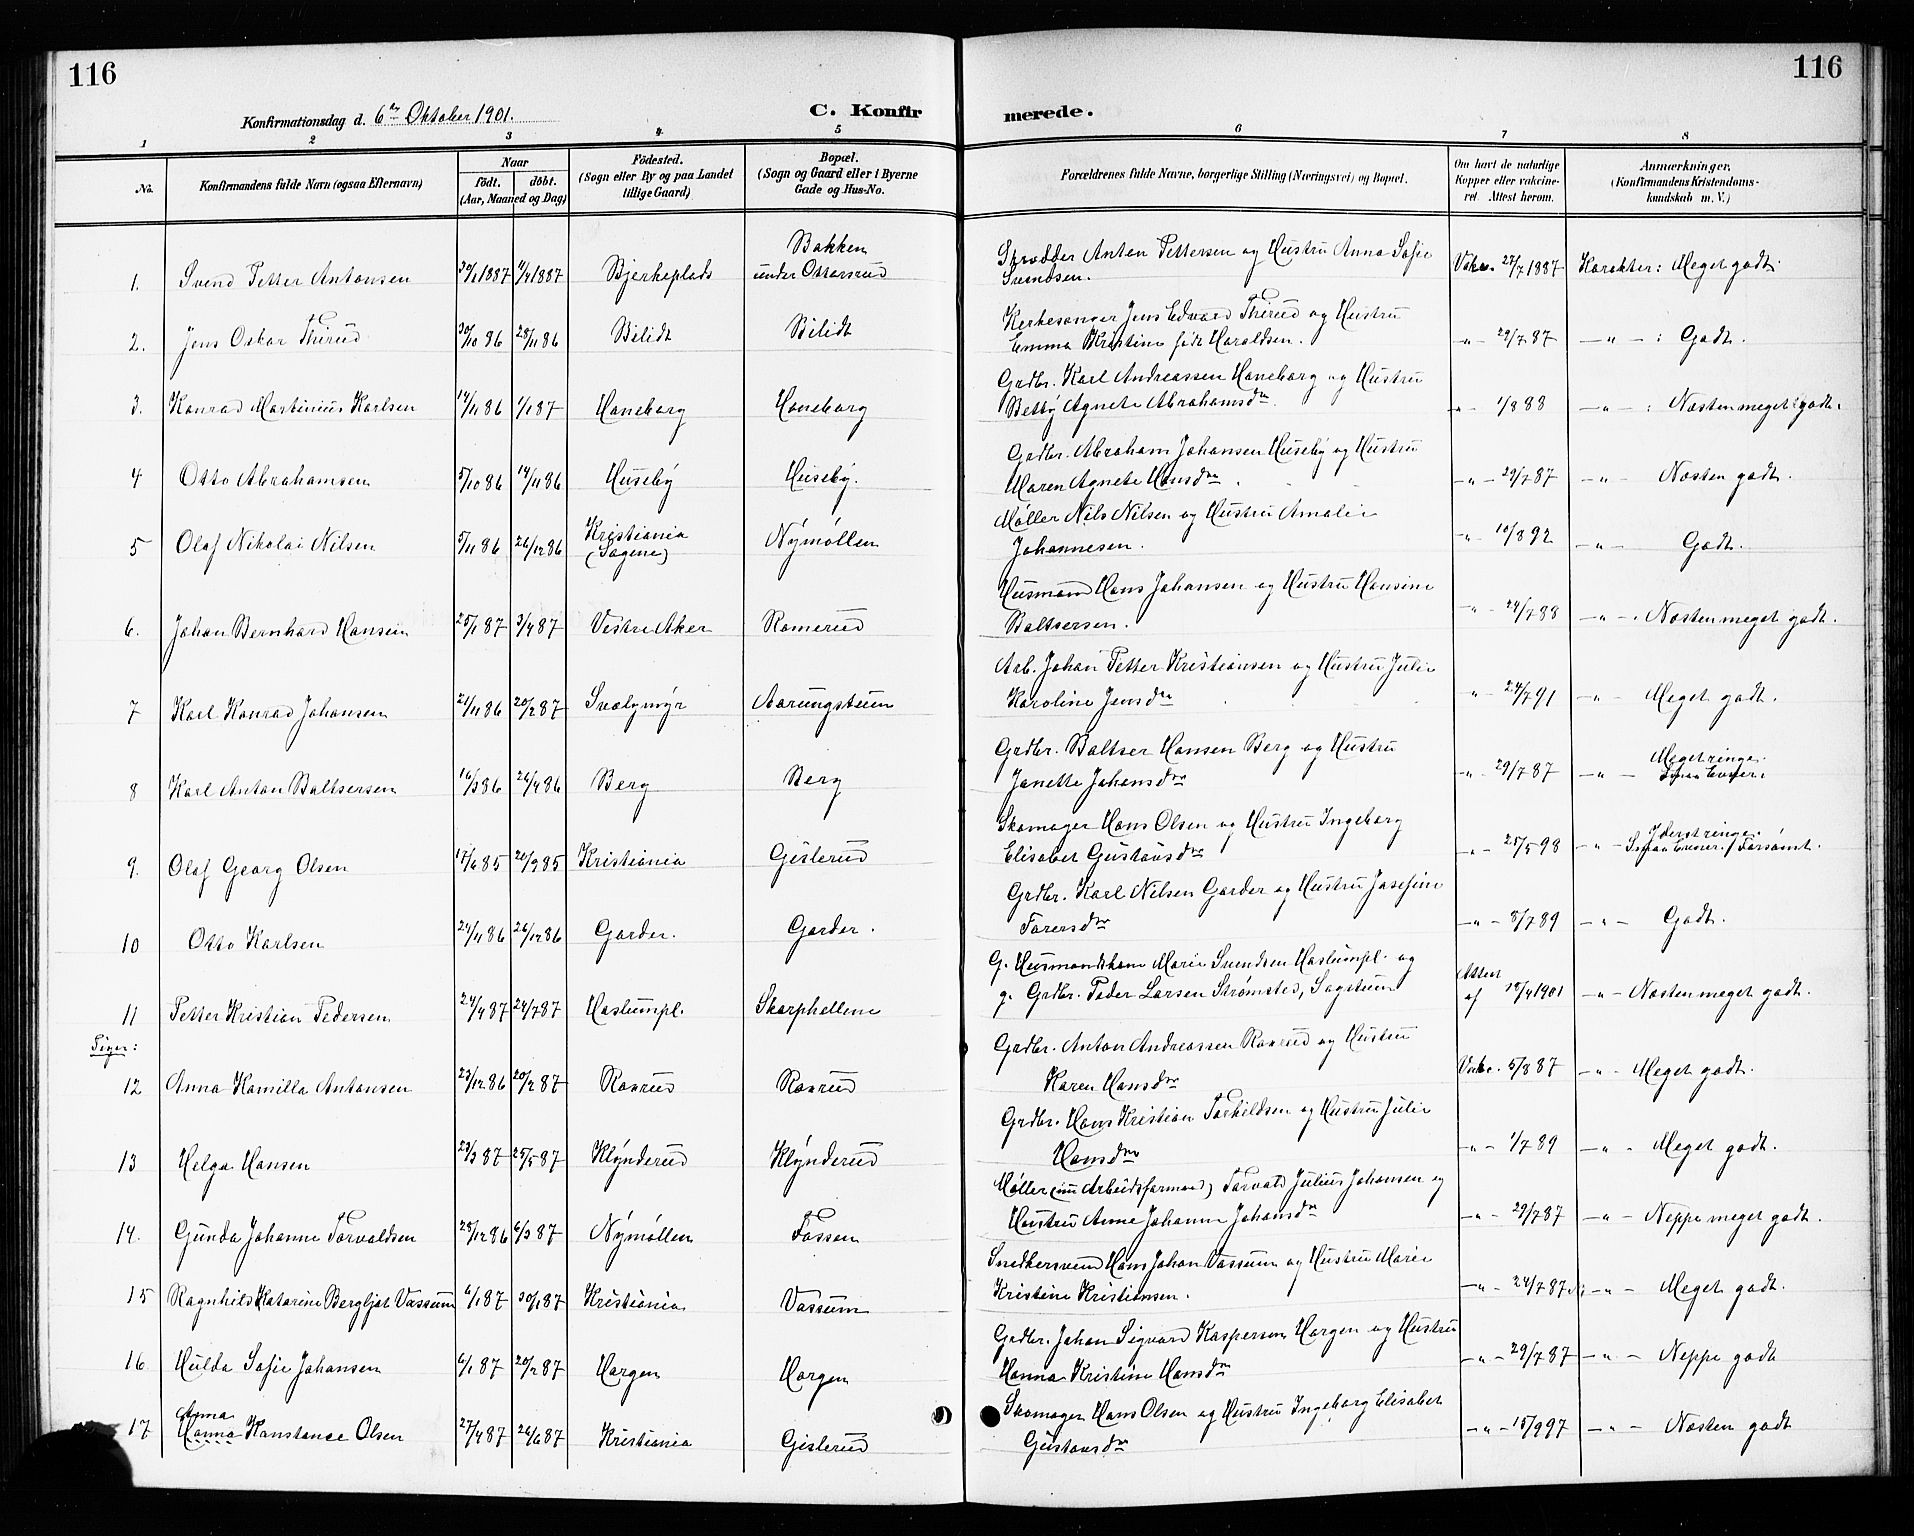 116
116
Konfirmationsdag d. 6te Oktober 1901.
C. Konfir
merede.
1 2 3 4 5 6 7 8
No.
Konfirmandens fulde Navn (ogsaa Efternavn)
Naar
födt. döbt.
(Aar, Maaned og Dag)
Födested.
(Sogn eller By og paa Landet
tillige Gaard)
Bopæl.
(Sogn og Gaard eller i Byerne
Gade og Hus-No.
Forældrenes fulde Navne, borgerlige Stilling (Næringsvei) og Bopæl.
Om havt de naturlige
Kopper eller vakcine-
ret. Attest herom.
Anmærkninger,
(Konfirmandens Kristendoms-
kundskab m. V.)
1. Svend Petter Antonsen 30/1 1887 11/4 1887 Bjerkeplads Bakken under Ottarsrud Skrædder Anton Pettersen og Hustru Anna Sofie
Svendsen. Vakc. 27/7 1887 Karakter: Meget godt.
2. Jens Oskar Thirud 30/10 86 28/11 86 Bilidt Bilidt Kirkesanger Jens Edvard Thirud og Hustru
Emma Kristine född Haraldsen. -"- 29/7 87 -"-: Godt.
3. Konrad Martinius Karlsen 14/11 86 1/1 87 Haneborg Haneborg Grdbr. Karl Andreassen Haneborg og Hustru
Betty Agnete Abrahamsdr. -"- 1/8 88 -"-: Næsten meget godt.
4 Otto Abrahamsen 5/10 86 14/11 86 Huseby Huseby. Grdbr. Abraham Johansen Huseby og Hustru
Maren Agnete Hansdr. -"- 29/7 87 -"- Næsten godt.
5 Olaf Nikolai Nilsen 5/11 86 26/12 86 Kristiania (Sagene) Nymøllen Møller Nils Nilsen og Hustru Amalie
Johannesen. -"- 10/8 92 -"- Godt.
6. Johan Bernhard Hansen 25/1 87 3/4 87 Vestre Aker Romerud Husmand Hans Johansen og Hustru Hansine
Baltsersen. -"- 24/7 88 -"- Næsten meget godt.
7 Karl Konrad Johansen 21/11 86 20/2 87 Aarungstuen Arb. Johan Petter Kristiansen og Hustru Julie
Karoline Jensdr -"- 24/7 91 -"- Meget godt.
8 Karl Anton Baltsersen 16/3 86 26/4 86 Berg Berg Grdbr. Baltser Hansen Berg og Hustru
Janette Johansdr -"- 29/7 87 -"- Meget ringe.
Smaa Evner.
9. Olaf Georg Olsen 17/6 85 20/9 85 Kristiania Gislerud Skomager Hans Olsen og Hustru Ingeborg
Elisabet Gustavsdr -"- 25/5 98 -"- Yderst ringe.
Smaa Evner. Forsømt.
10 Otto Karlsen 24/11 86 26/12 86 Garder. Garder. Grdbr. Karl Nilsen Garder og Hustru Josefine
Torersdr -"- 8/7 89 -"- Godt.
11 Petter Kristian Pedersen 24/4 87 24/7 87 Haslumpl. Skarphellene G. Husmandskone Marie Svendsen Haslumpl. og
g. Grdbr. Peder Larsen Strømsted, Sagstuen Attest af 12/4 1901 -"- Næsten meget godt.
Piger:
12 Anna Kamilla Antonsen 23/12 86 20/2 87 Raxrud Raxrud Grdbr. Anton Andreassen Raxrud og Hustru
Karen Hansdr Vakc. 5/8 87 -"- Meget godt.
13 Helga Hansen 23/3 87 25/5 87 Klynderud Klynderud Grdbr. Hans Kristian Torkildsen og Hustru Julie
Hansdr -"- 1/7 89 -"- Meget godt.
14. Gunda Johanne Torvaldsen 28/12 86 6/3 87 Nymøllen Fossen Møller (nu Arbeidsformand) Torvald Julius Johansen og
Hustru Anne Johanne Johansdr -"- 29/7 87 -"- Neppe meget godt.
15 Ragnhild Katarine Bergljot Vassum 6/1 87 30/1 87 Kristiania Vassum Snedkersvend Hans Johan Vassum og Hustru Marie
Kristine Kristiansen. -"- 24/7 87 -"- Meget godt.
16 Hulda Sofie Johansen 6/1 87 20/2 87 Horgen Horgen Grdbr. Johan Sigvard Kaspersen Horgen og Hustru
Hanna Kristine Hansdr -"- 29/7 87 -"- Neppe godt
17 Anna
Hanna Konstance Olsen 27/4 87 26/6 87 Kristiania Gislerud Skomager Hans Olsen og Hustru Ingeborg Elisabet
Gustavsdr -"- 15/9 97 -"- Næsten godt